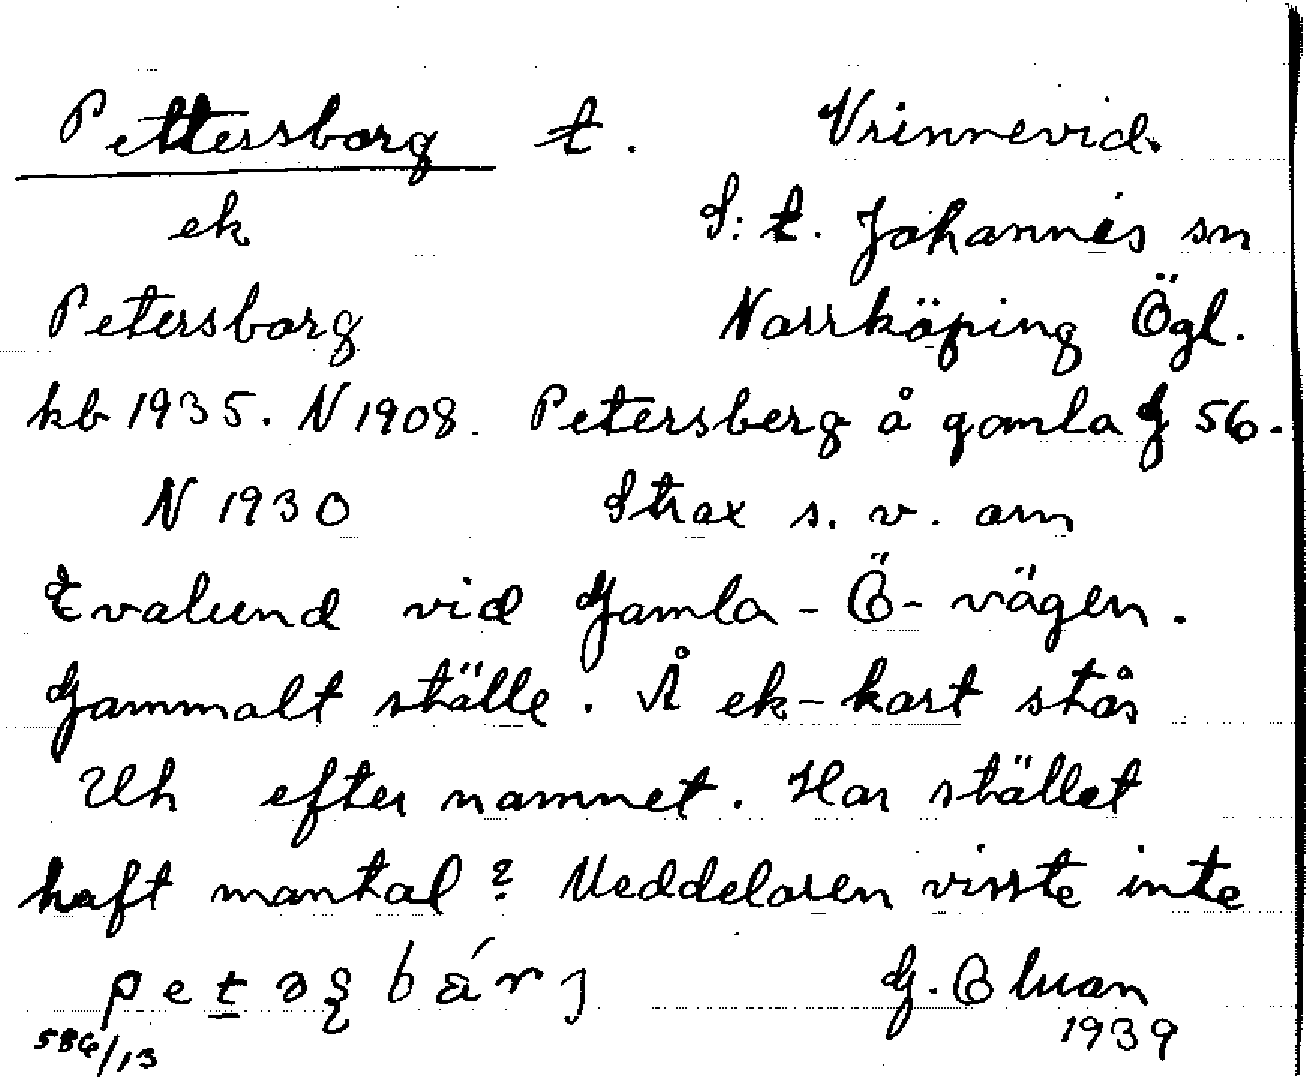 Pettersborg t. Vrinnevid.
ek S:t. Johannes sn
Petersborg Norrköping Ögl.
kb 1935. N 1908. Petersberg å gamla G 56.
N 1930 Strax s. v. om
Evalund vid Gamla-Ö-vägen.
Gammalt ställe. Å ek-kart stås
Uh efter namnet. Har stället
haft mantal? Meddelaren visste inte
G.
1939
586/13